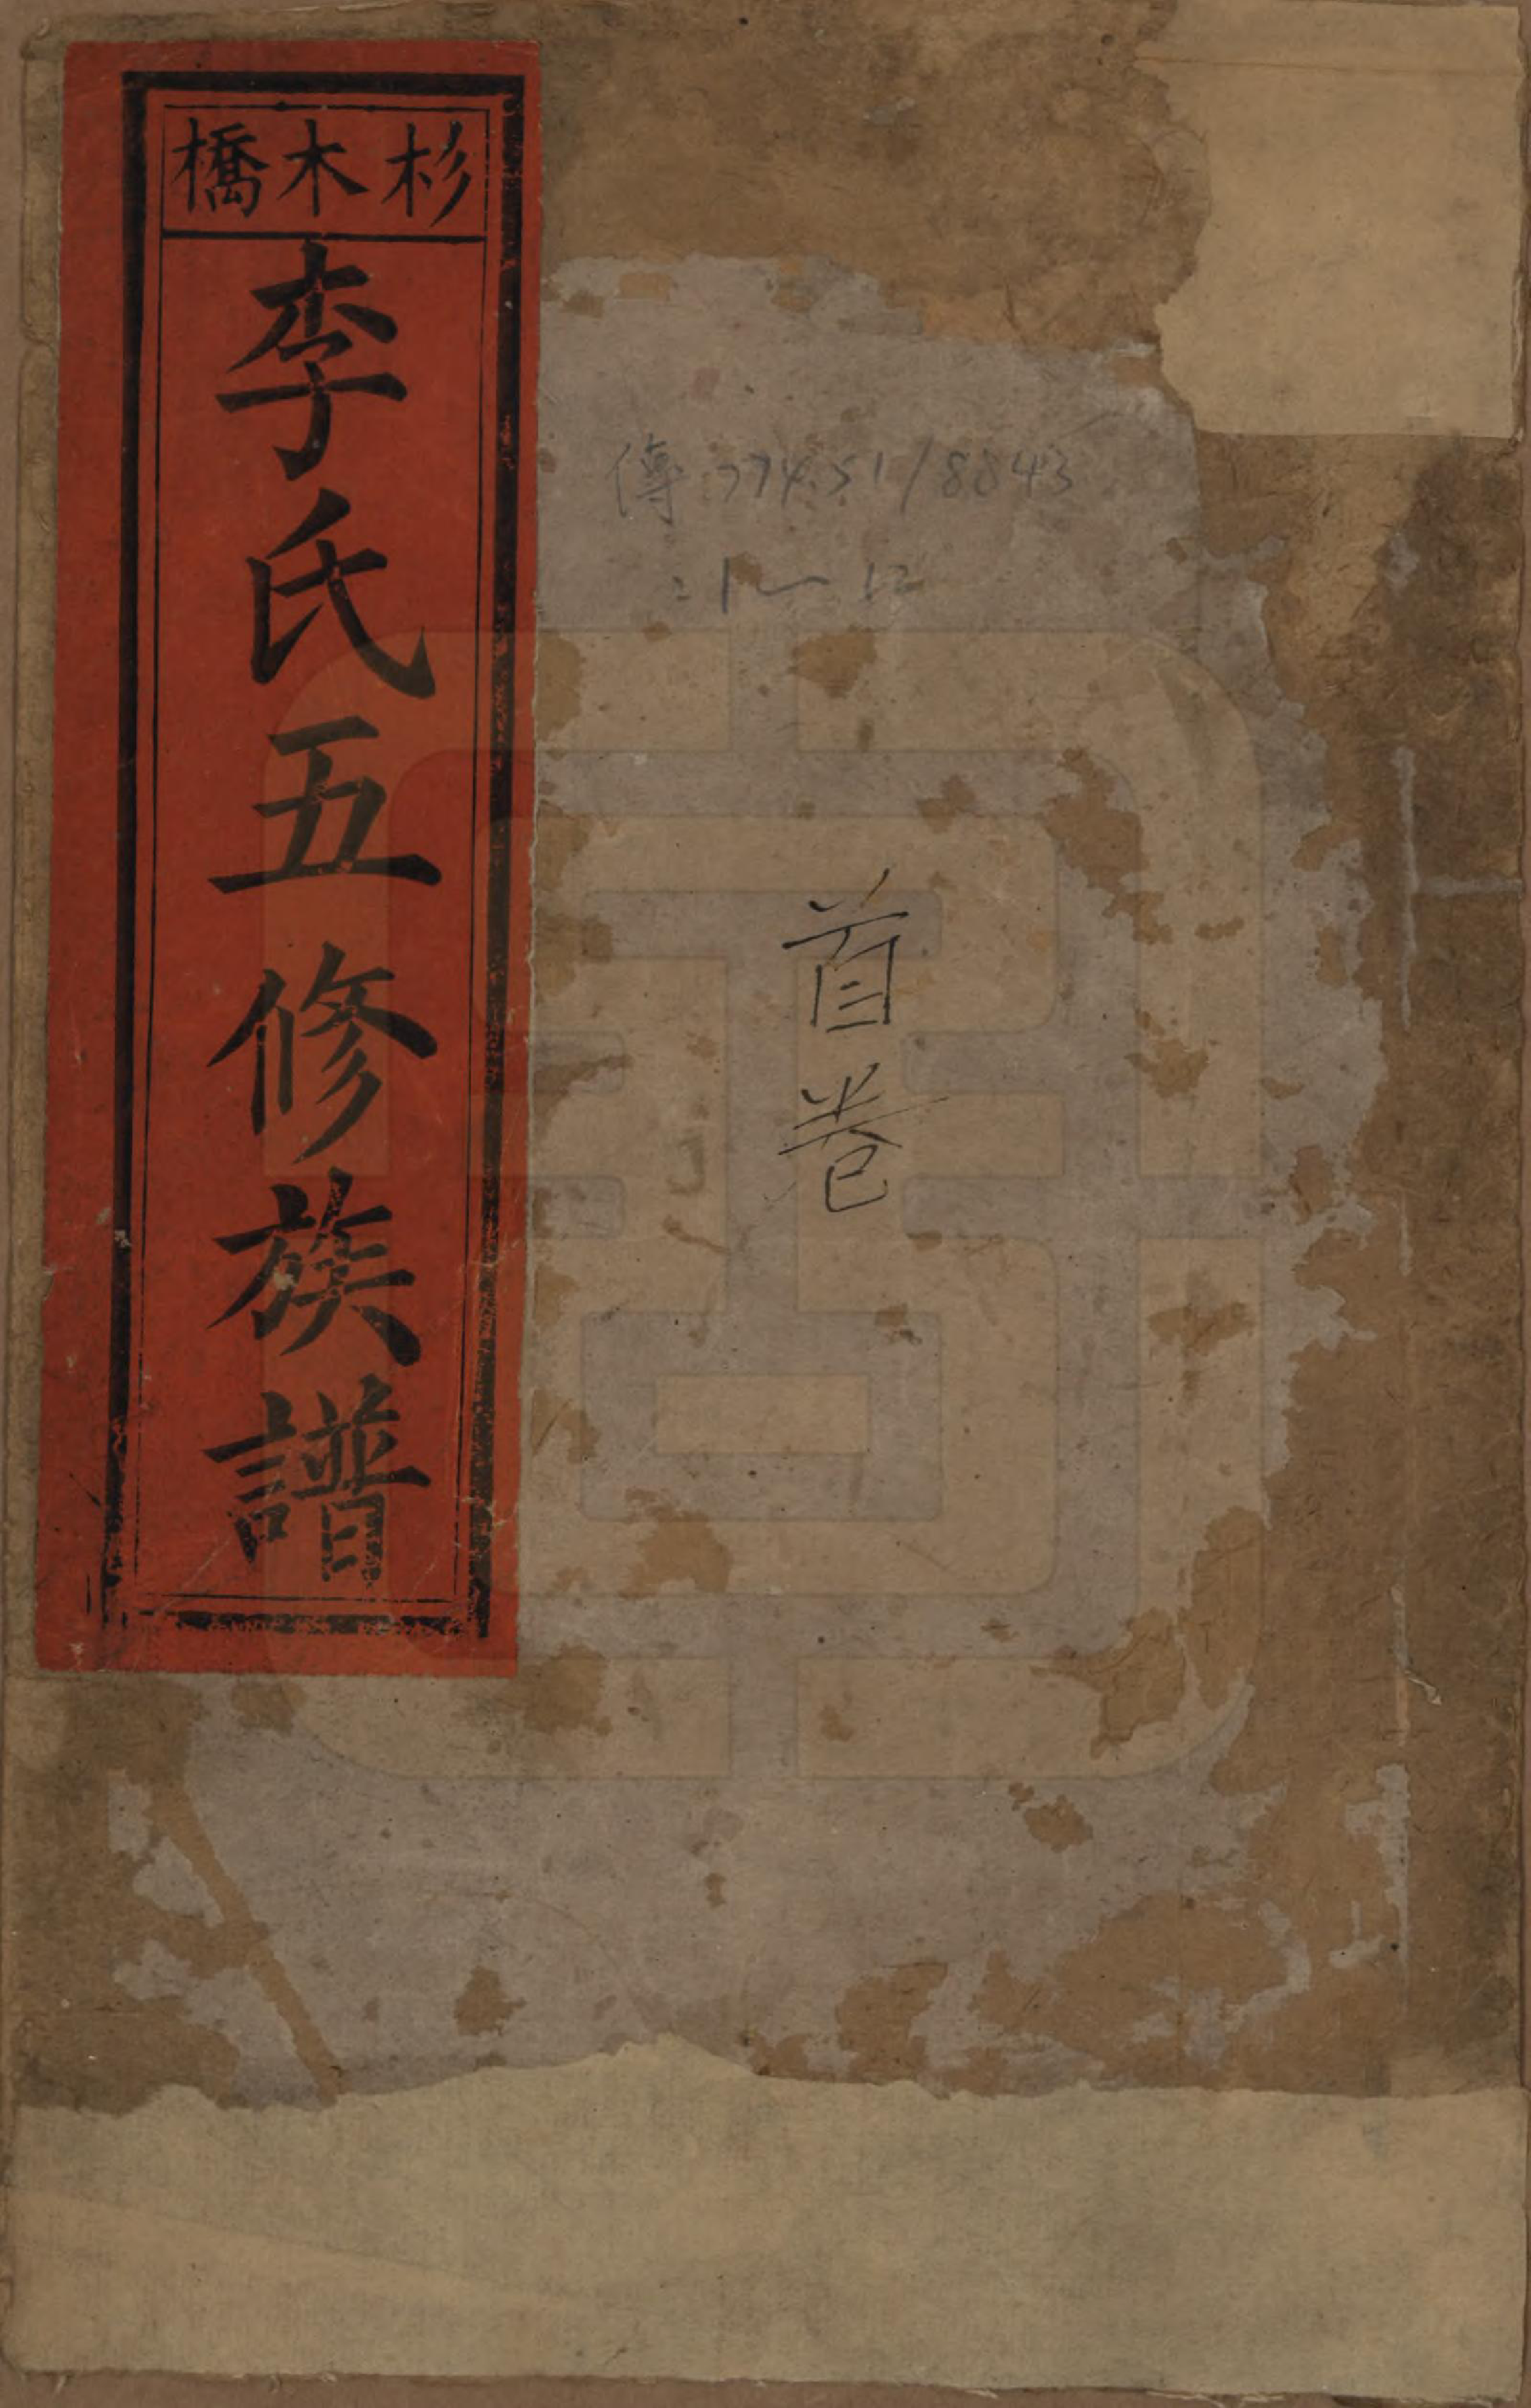 杉木橋
李氏五修族譜
首卷
傳:774.51/8843